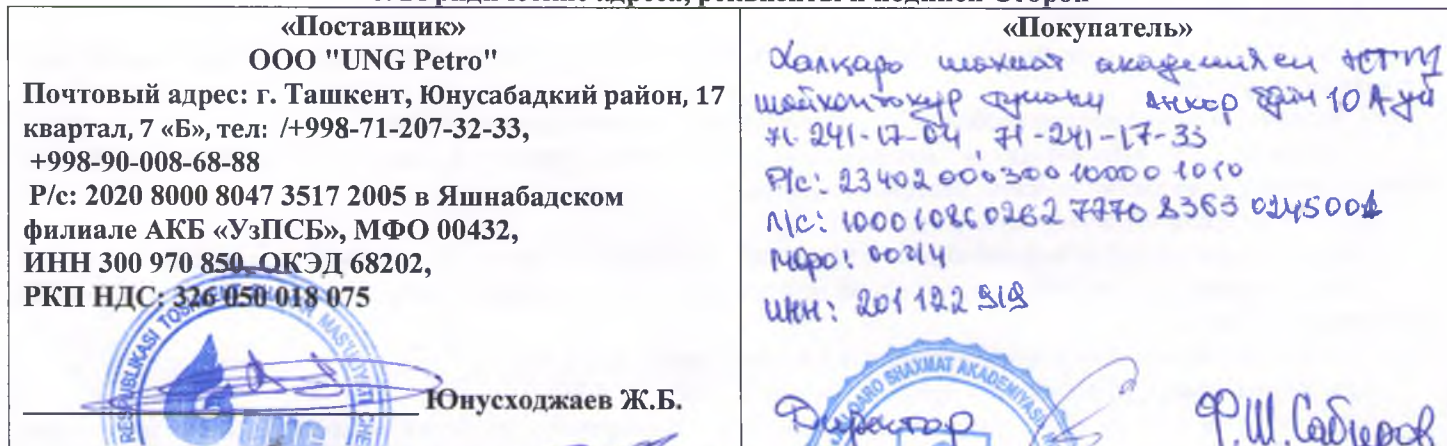 «Поставщик»
ООО "UNG Petro"
Почтовый адрес: г. Ташкент, Юнусабадкий район, 17
квартал, 7 «Б», тел: /+998-71-207-32-33,
+998-90-008-68-88
Р/с: 2020 8000 8047 3517 2005 в Яшнабадском
филиале АКБ «УзПСБ», МФО 00432,
ИНН 300 970 850, ОКЭД 68202,
РКП НДС: 326 050 018 075
Юнусходжаев Ж.Б.
«Покупатель»
Халқаро шахмат академияси
шайхонтохур 10 А уй
71-241-17-04, 71-241-17-33
Р/с: 23402000300100001010
Л/с: 100010860262777083630245001
МФО: 00014
ИНН: 201 122 919
SHAXMAT
Директор
Ф.Ш. Сабиров